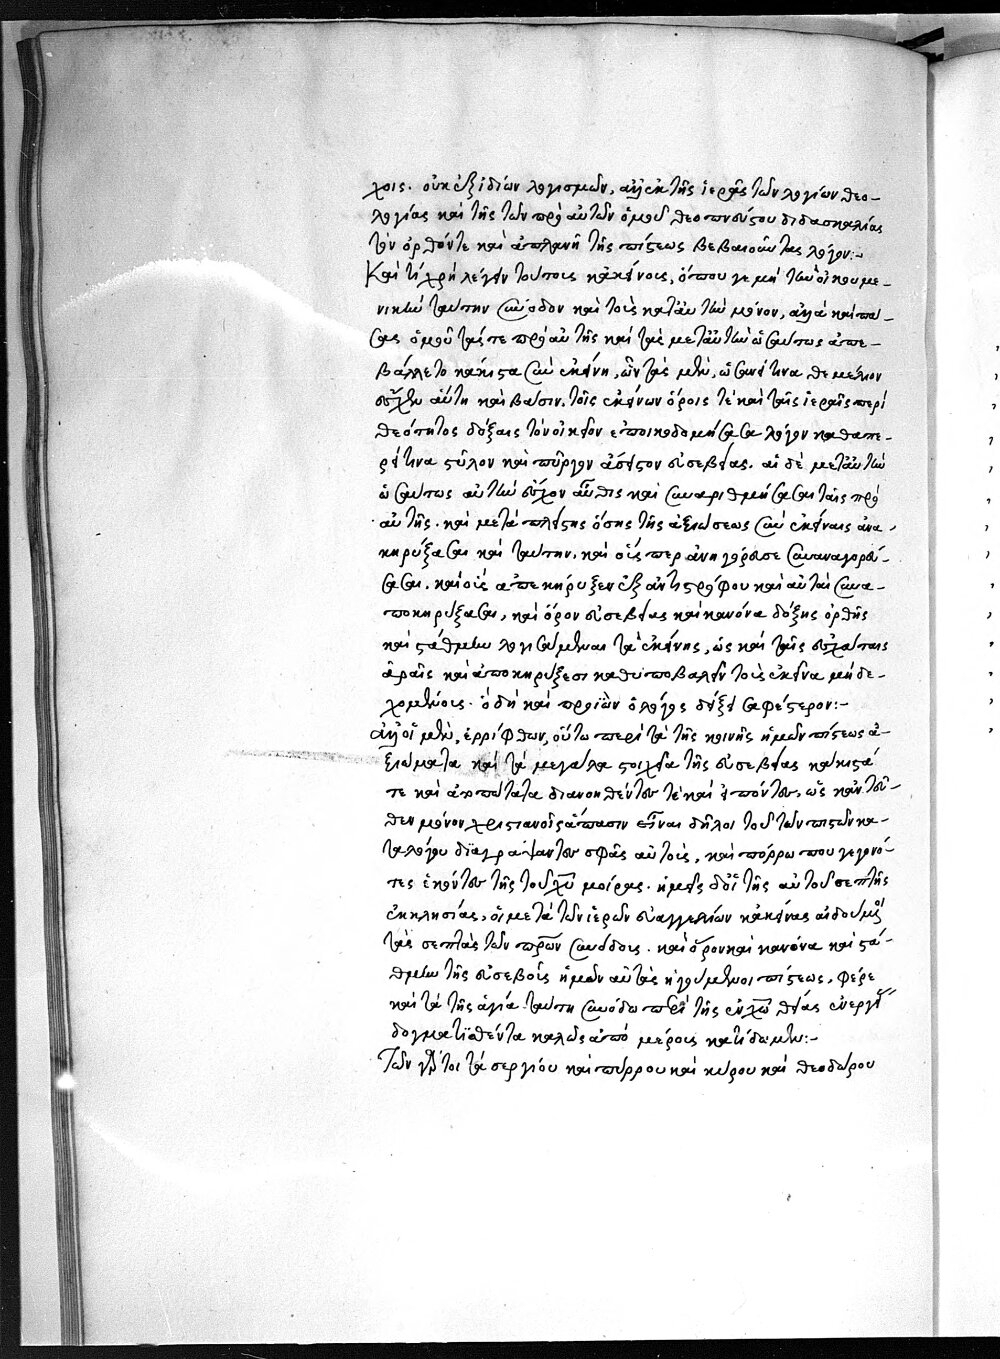 χοις. οὐκ ἐξ ἰδίων λογισμῶν, ἀλλ' ἐκ τῆς ἱερᾶς τῶν λογίων θεο-
λογίας καὶ τῆς τῶν πρὸ αὐτῶν ὁμοῦ θεοπνεύστου διδασκαλίας
τὸν ὀρθόν τε καὶ ἀπλανῆ τῆς πίστεως βεβαιοῦντας λόγον:-
Καὶ τί χρὴ λέγειν τούτοις κἀκείνοις, ὅπου γε μὴ τὴν οἰκουμε-
νικὴν ταύτην σύνοδον καὶ τοὺς κατ' αὐτὴν μόνον, ἀλλὰ καὶ πά-
σας ὁμοῦ τάς τε πρὸ αὐτῆς καὶ τὰς μετ' αὐτὴν ὡσαύτως ἀπε-
βάλλετο κάκιστα σὺν ἐκείνῃ, ὧν τὰς μὲν, ὡσανεί τινα θεμέλιον
εὐχὴν αὕτη καὶ βάσιν, τοῖς ἐκείνων ὅροις τὲ καὶ ταῖς ἱεραῖς περὶ
θεότητος δόξαις τὸν οἰκεῖον ἐποικοδομήσασα λόγον καθαπε-
ρεί τινα στύλον καὶ πύργον ἄσειστον εὐσεβείας. αἱ δὲ μετ' αὐτὴν
ὡσαύτως αὐτὴν εὖχον αὖθις καὶ συναριθμήσασαι ταῖς πρὸ
αὐτῆς. καὶ μετὰ πλείστης ὅσης τῆς ἀξιώσεως σὺν ἐκείναις ἀνα-
κηρύξασαι καὶ ταύτην. καὶ οἷς περ ἀνηγόρευσε συναναγορεύ-
σασαι. καὶ οὓς ἀπεκήρυξεν ἐξ ἀντιστρόφου καὶ αὐταὶ συνα-
ποκηρύξασαι, καὶ ὅρον εὐσεβείας καὶ κανόνα δόξης ὀρθῆς
καὶ στάθμην λογισάμεναι τὰ ἐκείνης, ὡς καὶ ταῖς ἐσχάταις
ἀραῖς καὶ ἀποκηρύξεσι καθυποβαλεῖν τοὺς ἐκεῖνα μὴ δε-
χομένους. ὃ δὴ καὶ προϊὼν ὁ λόγος δείξει σαφέστερον:-
ἀλλ' οἱ μὲν, ἐρρίφθων, οὕτω περὶ τὰ τῆς κοινῆς ἡμῶν πίστεως ἀ-
ξιώματα καὶ τὰ μεγάλα στοιχεῖα τῆς εὐσεβείας κάκιστά
τε καὶ ἀτοπώτατα διανοηθέντες τὲ καὶ εἰπόντες. ὡς κἀντεῦ-
θεν μόνον χριστιανοῖς ἅπασιν εἶναι δῆλοι τοῦ τῶν πιστῶν κα-
ταλόγου διαγράψαντες σφᾶς αὐτοὺς, καὶ πόρρω που γεγονό-
τες ἑκόντες τῆς τοῦ χυ μοίρας. ἡμεῖς δὲ οἱ τῆς αὐτοῦ σεπτῆς
ἐκκλησίας, οἱ μετὰ τῶν ἱερῶν εὐαγγελίων κἀκείνας αἰδούμενοι
τὰς σεπτὰς τῶν πρων συνόδους. καὶ ὅρον καὶ κανόνα καὶ στά-
θμην τῆς εὐσεβοῦς ἡμῶν αὐτὰς ἡγούμενοι πίστεως, φέρε
καὶ τὰ τῆ ἁγία ταύτη συνόδω περὶ τῆς ἐν χω θείας ἐνεργείας
δογματισθέντα καλῶς ἀπὸ μέρους κατίδωμεν:-
Τῶν γὰρ τοι τὰ σεργίου καὶ πύρρου καὶ κύρου καὶ θεοδώρου